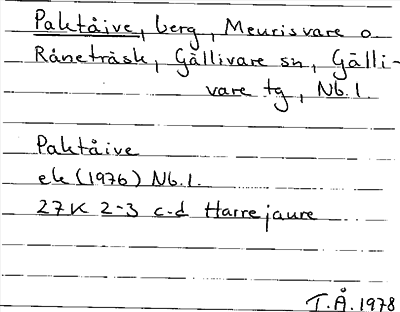 Paktåive, berg, Meurisvare o
Råneträsk, Gällivare sn, Gälli-
vare tg, Nb.l.
Paktåive
ek (1976) Nb.l.
27K 2-3 c-d Harrejaure
T.Å. 1978